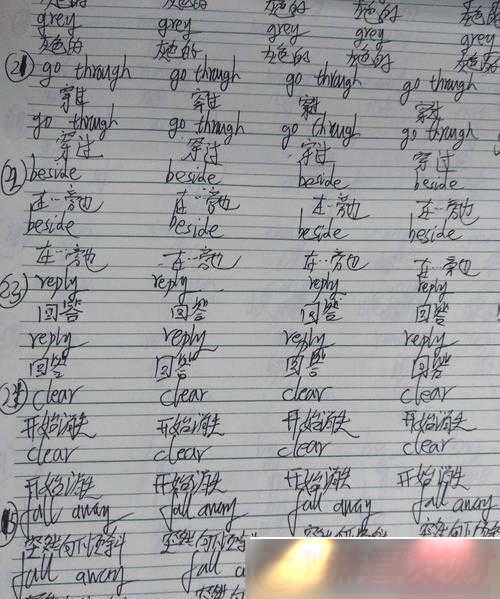 灰色的 灰色的 灰色的 灰色的 灰色的
grey grey grey grey grey
灰色的 灰色的 灰色的 灰色的 灰色的
(21) go through go through go through go through
穿过 穿过 穿过 穿过
go through go through go through go through
穿过 穿过 穿过 穿过
beside beside beside beside
在…旁边 在…旁边 在…旁边 在…旁边
beside beside beside beside
在…旁边 在…旁边 在…旁边 在…旁边
(23) reply reply reply reply
回答 回答 回答 回答
reply reply reply reply
回答 回答 回答 回答
(24) clear clear clear clear
开始消失 开始消失 开始消失 开始消失
clear clear clear clear
开始消失 开始消失 开始消失 开始消失
fall away fall away fall away fall away
突然向下倾斜 突然向下倾斜
fall away fall away fall a